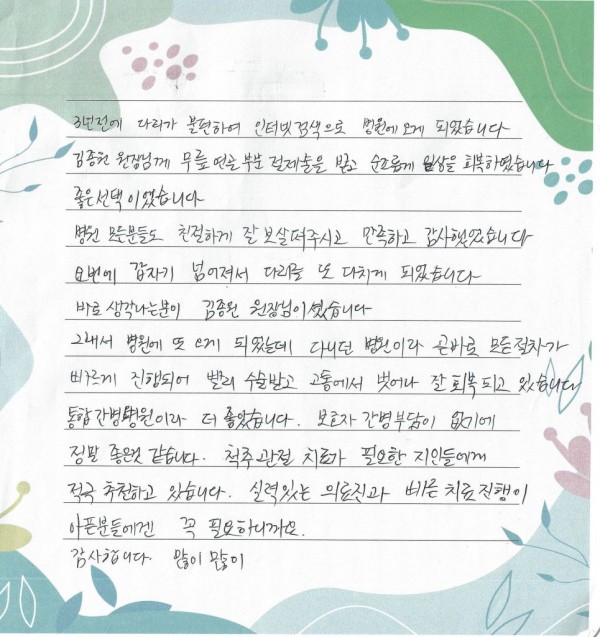 3년전에 다리가 불편하여 인터넷검색으로 병원에 오게 되었습니다
김종원 원장님께 무릎 연골 부분 절제술을 받고 순조롭게 일상을 회복하였습니다
좋은선택이였습니다
병원 모든분들도 친절하게 잘 보살펴주시고 만족하고 감사했었습니다
요번에 갑자기 넘어져서 다리를 또 다치게 되었습니다
바로 생각나는분이 김종원 원장님이셨습니다
그래서 병원에 또 오게 되었는데 다니던 병원이라 곧바로 모든절차가
빠르게 진행되어 빨리 수술받고 고통에서 벗어나 잘 회복되고 있습니다
통합간병병원이라 더 좋았습니다. 보호자 간병부담이 없기에
정말 좋은것 같습니다. 척추관절 치료가 필요한 지인들에게
적극 추천하고 있습니다. 실력있는 의료진과 빠른 치료진행이
아픈분들에겐 꼭 필요하니까요.
감사합니다. 많이 많이